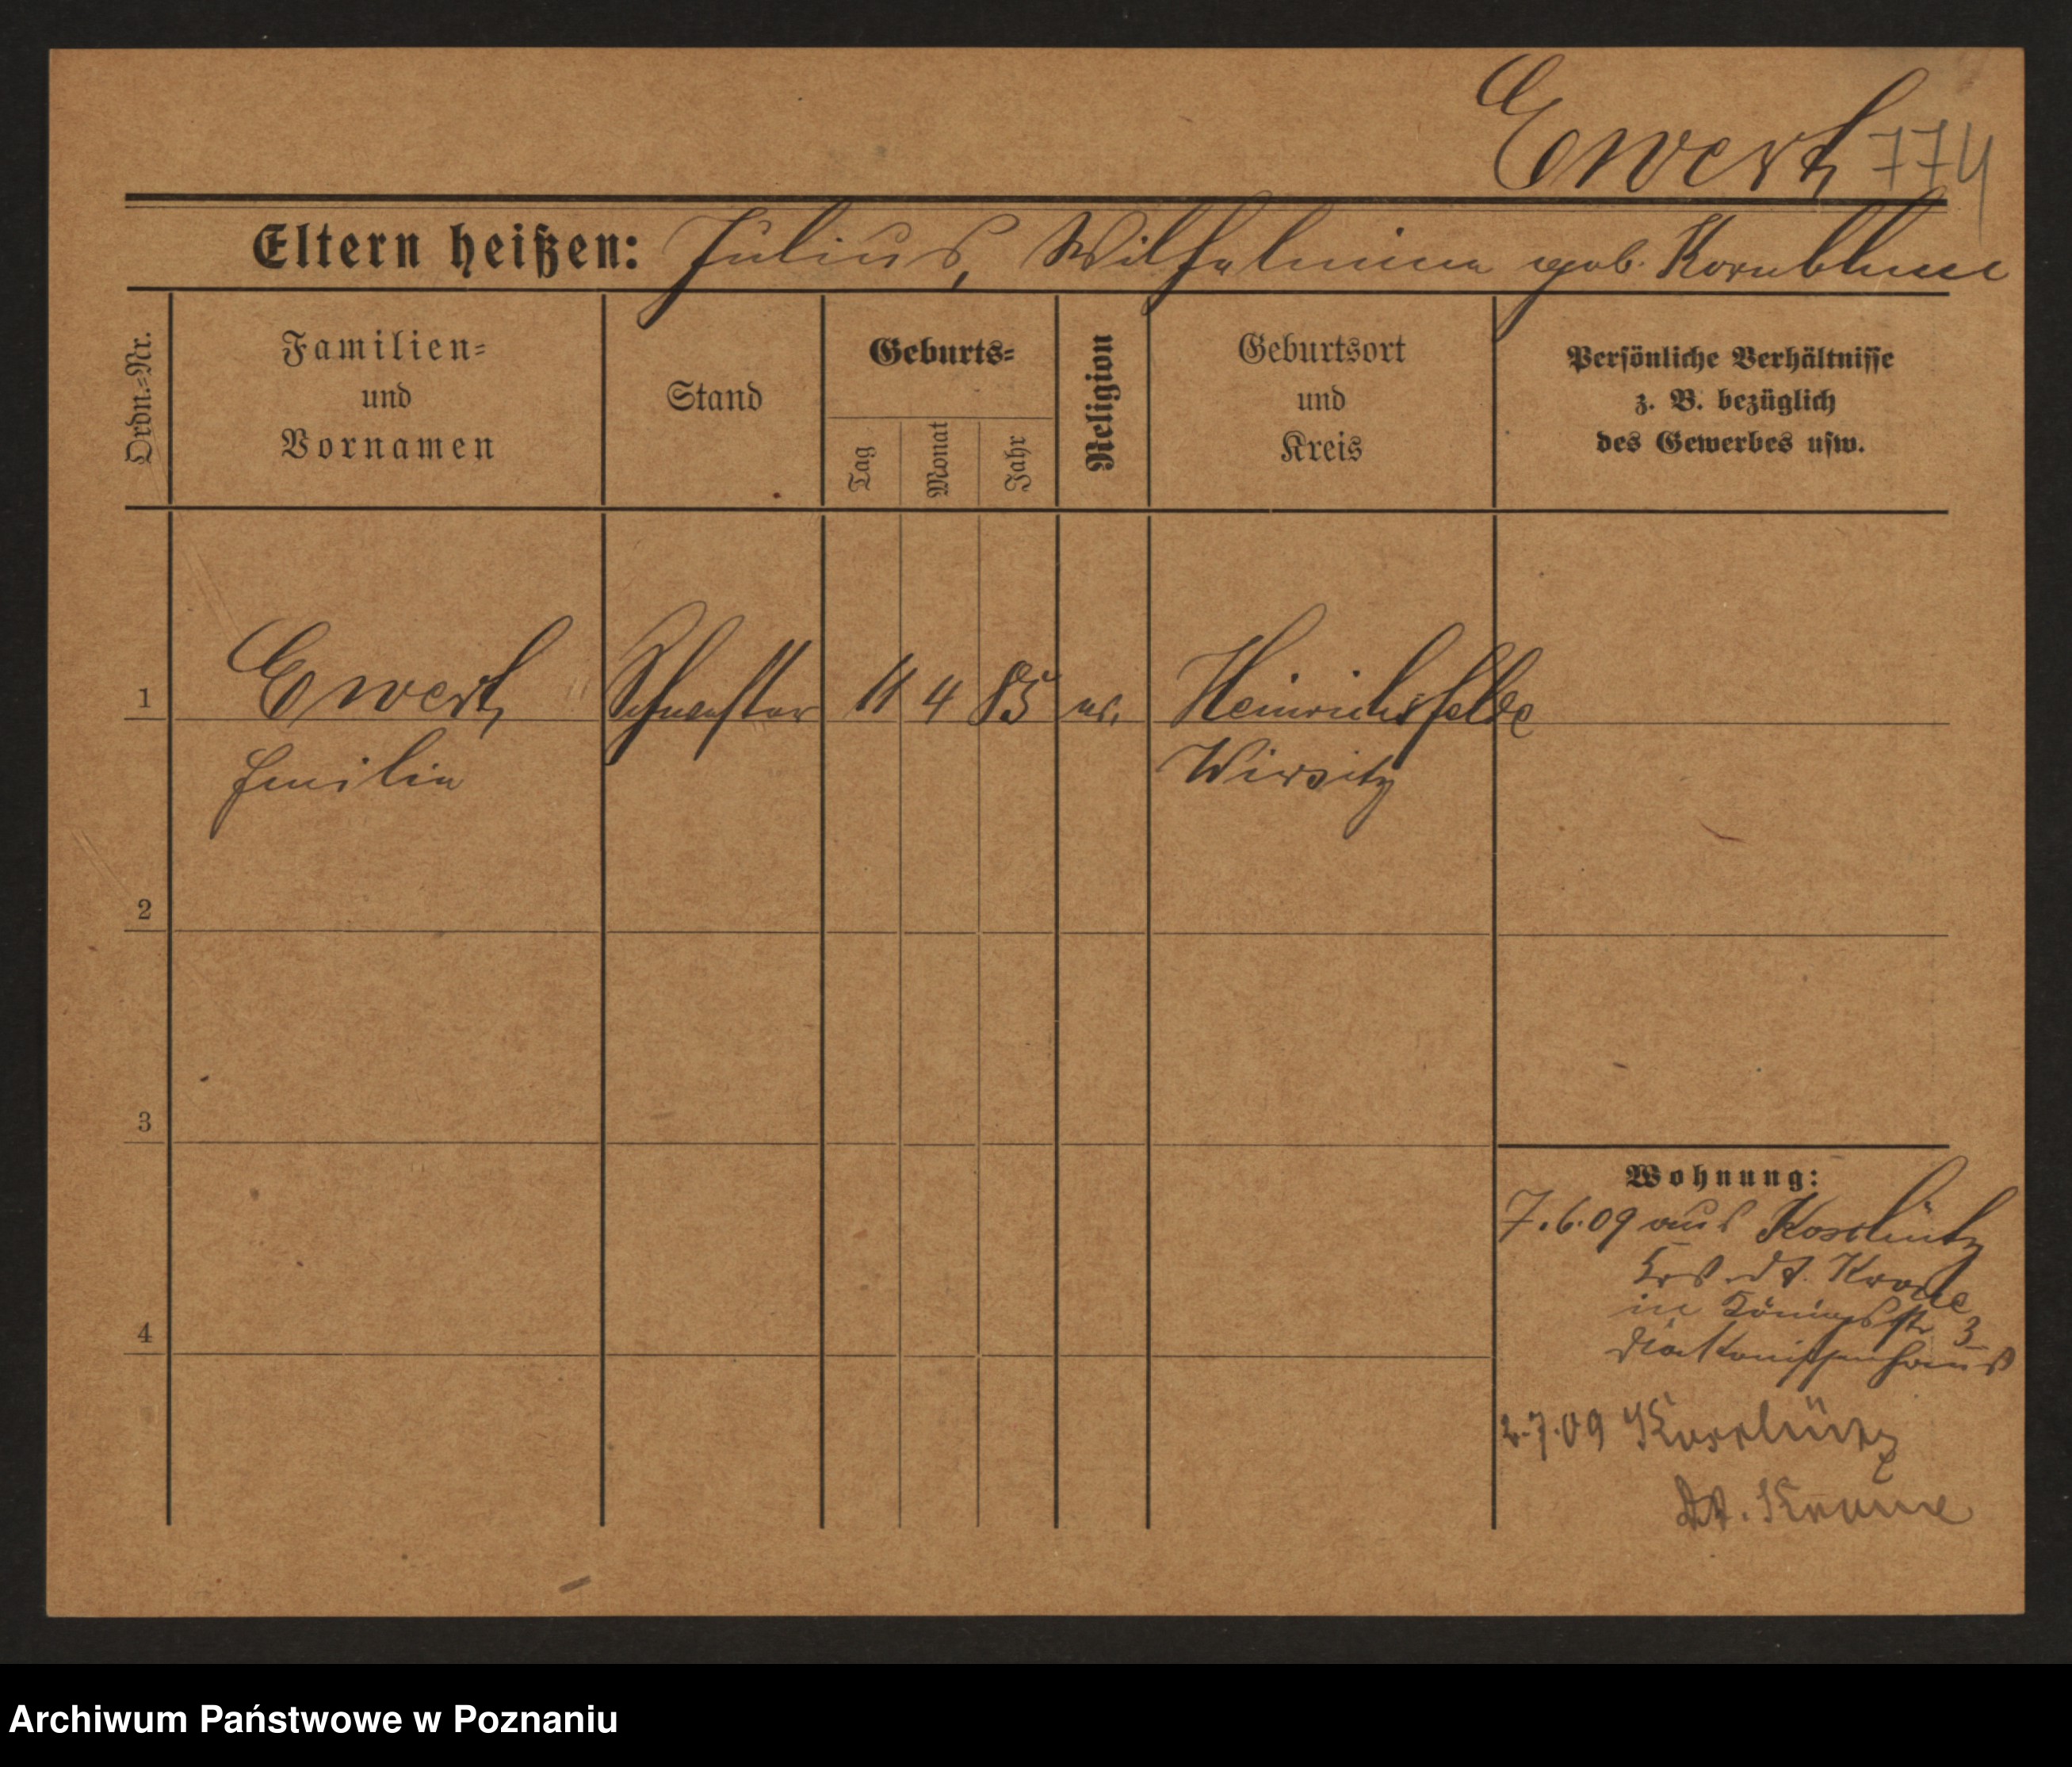 Ewert 774
Eltern heißen: Julius, Wilhelmine geb. Kornblum
Ordn.-Nr.
Familien-
und
Vornamen
Stand
Geburts-
Tag
Monat
Jahr
Religion
Geburtsort
und
Kreis
Persönliche Verhältnisse
z. B. bezüglich
des Gewerbes usw.
1 Ewert Schwester 11 4 85 ev. Heinrichsfelde
Emilie Wirsitz
2
3
4
Wohnung:
7.6.09 aus
Krs. Dt. Krone
in Königsstr 3
Diakonissenhaus
2.7.09
Dt. Krone
Archiwum Państwowe w Poznaniu